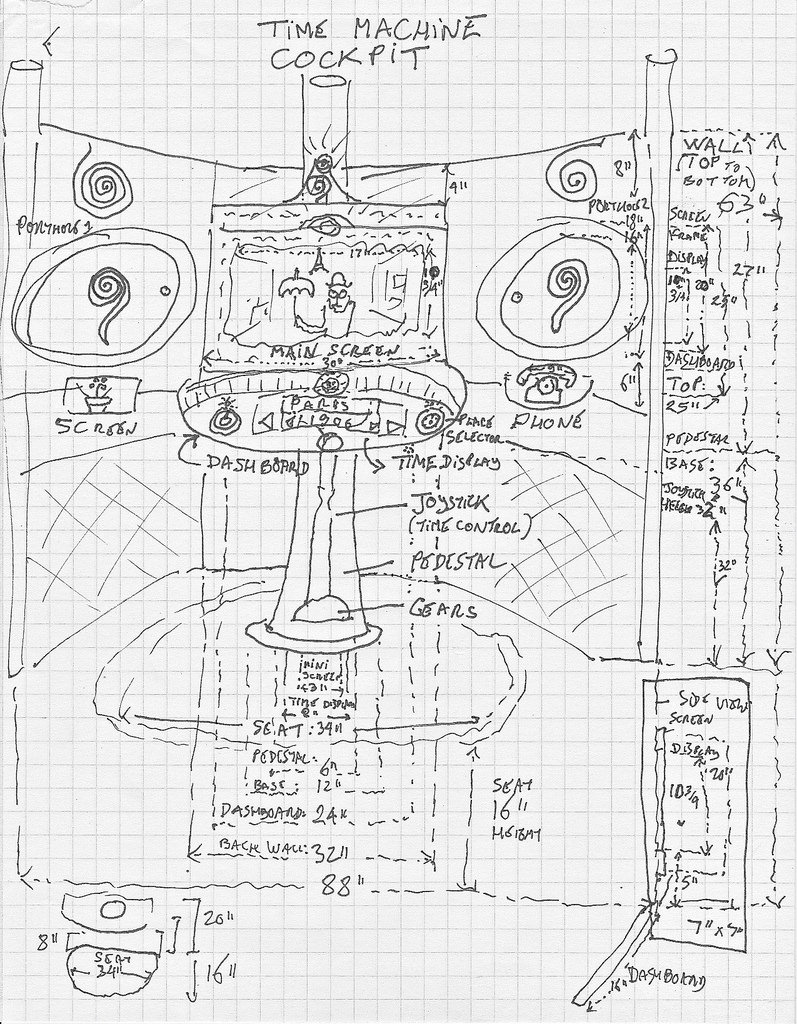 TIME MACHINE
COCKPIT
WALL:
(TOP TO
BOTTOM)
63"
8"
4"
PORTHOLE 1
PORTHOLE 2
18"
16"
SCREEN
FRAME
DISPLAY
10
3/4
20"
25"
27"
17"
10
3/4"
MAIN SCREEN
30"
DASHBOARD
TOP:
25"
6"
SCREEN
PHONE
PARIS
1926
PLACE
SELECTOR
DASHBOARD
TIME DISPLAY
PEDESTAL
BASE:
36"
JOYSTICK
HEIGHT 32"
32"
JOYSTICK
(TIME CONTROL)
PEDESTAL
GEARS
MINI
SCREEN
3"
TIME DISPLAY
8"
SEAT: 34"
PEDESTAL:
6"
BASE: 12"
DASHBOARD: 24"
BACK WALL: 32"
88"
SEAT
16"
HEIGHT
SIDE VIEW
SCREEN
DISPLAY
20"
10 3/4
5"
7" x 5"
16" DASHBOARD
20"
8"
SEAT
34"
16"